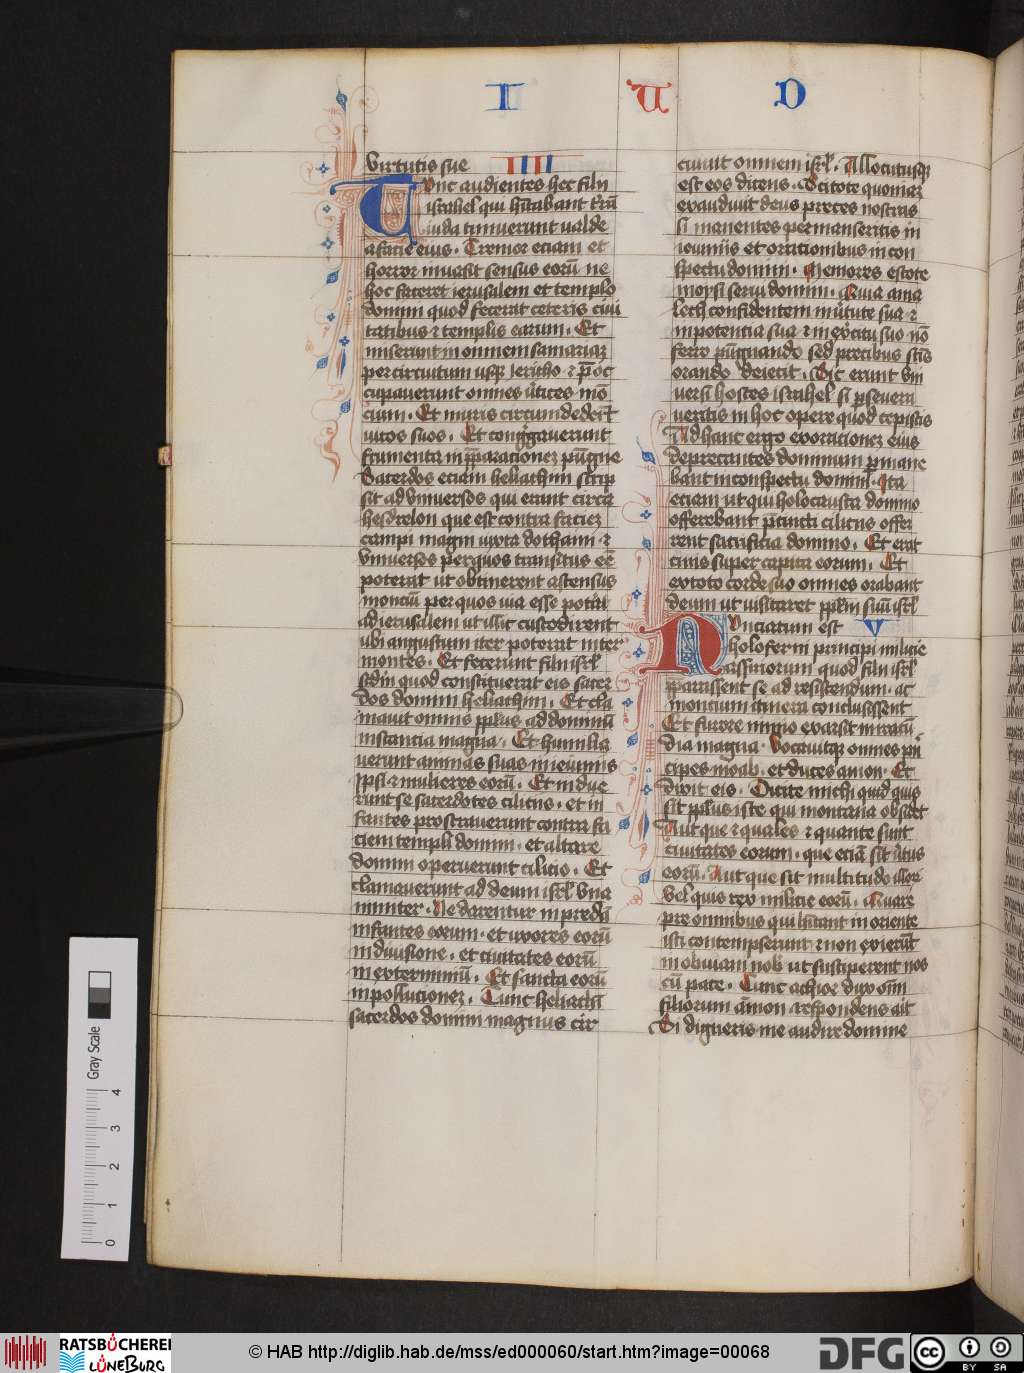 I U D
virtutis sue IIII
Tunc audientes hec filii
israhel qui h̄itabant t̄rā
iuda timuerunt valde
a facie eius. Tremor eciam et
horror inuasit sensus eorū ne
hoc faceret ierusalem et templo
domini quod fecerat ceteris ciui
tatibus ⁊ templis earum. Et
miserunt in onmem samariaꝫ
per circuitum usqꝫ Jericho ⁊ p̄oc
cupauerunt omnes v̄tices mō
cium. Et muris circumdeder̄t
vicos suos. Et congͥgauerunt
frumenta in p̄paracionez pūgne
Sacerdos eciam heliachim scrip
sit ad vniuersos qui erant circa
hesdrelon que est contra faciez
campi magni iuxta dothaim ⁊
vniuersos per quos transitus eē
poterat ut obtinerent ascensus
monciū per quos via esse pot̄at
ad ierusalem ut illic custodirent
ubi angustum iter poterat inter
montes. Et fecerunt filii isrl̄
scd̄m quod constituerat eis sacer
dos domini heliachim. Et cla
mauit omnis pplus ad dominū
instancia magna. Et humilia
uerunt animas suas in ieiuniis
ipsi ⁊ mulieres eorū. Et indue
runt se sacerdotes ciliciis. et in
fantes prostrauerunt contra fa
ciem templi domini. et altare
domini operuerunt cilicio. Et
clamauerunt ad deum isrl̄ vna
nimiter. Ne darentur in predā
infantes eorum. et vxores eorū
in diuisione. et ciuitates eorū
in exterminiū. Et sancta eorū
in pollucionez. Tunc heliachī
sacerdos domini magnus cir
cuiuit omnem isrl̄. Allocutusqꝫ
est eos dicens. Scitote quoniaꝫ
exaudiuit deus preces nostras
si manentes permanseritis in
ieiuniis et orationibus in con
spectu domini. Memores estote
moysi serui domini. Quia ama
lech confidentem in v̄tute sua ⁊
in potencia sua ⁊ in ex̄citu suo nō
ferro pūgnando sed precibus sc̄is
orando deiecit. Sic erunt vni
uersi hostes israhel si perseuera
ueritis in hoc opere quod cepistis
Ad hanc ergo exoracionez eius
deprecantes dominum permane
bant in conspectu domini. Ita
eciam ut qui holocausta domino
offerebant p̄cincti ciliciis offer
rent sacrificia domino. Et erat
cinis super capita eorum. Et
ex toto corde suo omnes orabant
deum ut visitaret pplm̄ suū isrl̄
Nunciatum est V
holoferni principi milicie
assiriorum quod filii isrl̄
pparassent se ad resistendum. ac
moncium itinera conclusissent
Et furore nimio exarsit in iracū
dia magna. Vocauitqꝫ omnes pͥn
cipes moab. et duces amon. Et
dixit eis. Dicite michi quid quis
sit pplus iste qui montana obsidet
Aut que ⁊ quales ⁊ quante sunt
ciuitates eorum. que eciā sit v̄tus
eorū. Aut que sit multitudo illorū
vel quis rex milicie eorū. Quare
pre omnibus qui h̄itant in oriente
isti contempserunt ⁊ non exierūt
in obuiam nob̄ ut susciperent nos
cū pace. Tunc achior dux om̄
filiorum āmon ⁊ respondens ait
Si digneris me audire domine
Gray Scale
0 1 2 3 4
RATSBÜCHEREI
LÜNEBURG
© HAB http://diglib.hab.de/mss/ed000060/start.htm?image=00068
DFG
cc
BY SA